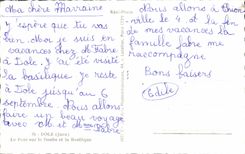 Ma chère Marraine
J'espère que tu vas
bien. Moi je suis en
vacances chez Mr Fabre
à Dole. J'ai été visité
la basilique. Je reste
à Dole jusqu'au 6
septembre. Nous allons
faire un beau voyage
avec Mr et Mme Fabre
DOLE (Jura)
Le Pont sur le Doubs et la Basilique
Nous allons à
ville le 4 et la fin
de mes vacances la
famille Fabre me
raccompagne
Bons baisers
Odile